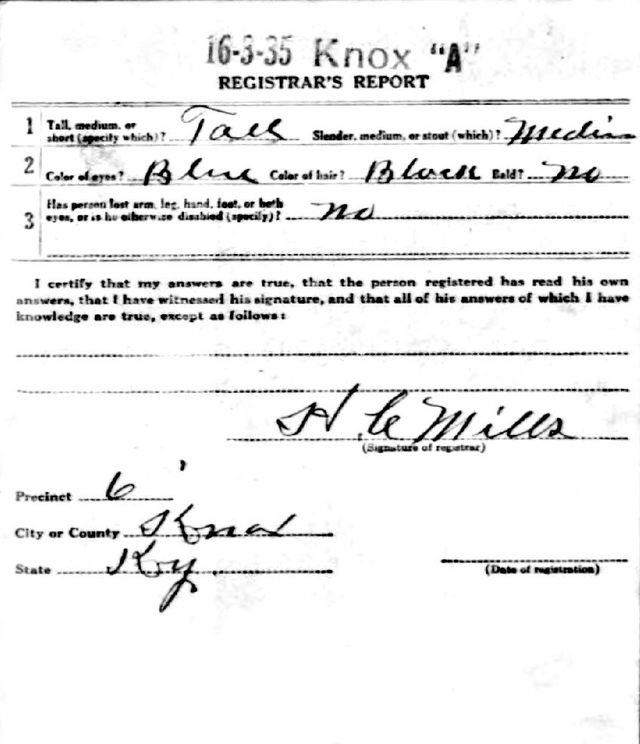 16-3-35 Knox "A"
REGISTRAR'S REPORT
1 Tall, medium, or short (specify which)? Tall Slender, medium, or stout (which)? Medium
2 Color of eyes? Blue Color of hair? Black Bald? No
3 Has person lost arm, leg, hand, foot, or both
eyes, or is he otherwise disabled (specify)? no
I certify that my answers are true, that the person registered has read his own
answers, that I have witnessed his signature, and that all of his answers of which I have
knowledge are true, except as follows:
H C Mills
(Signature of registrar)
Precinct 6
City or County Knox
State Ky
(Date of registration)